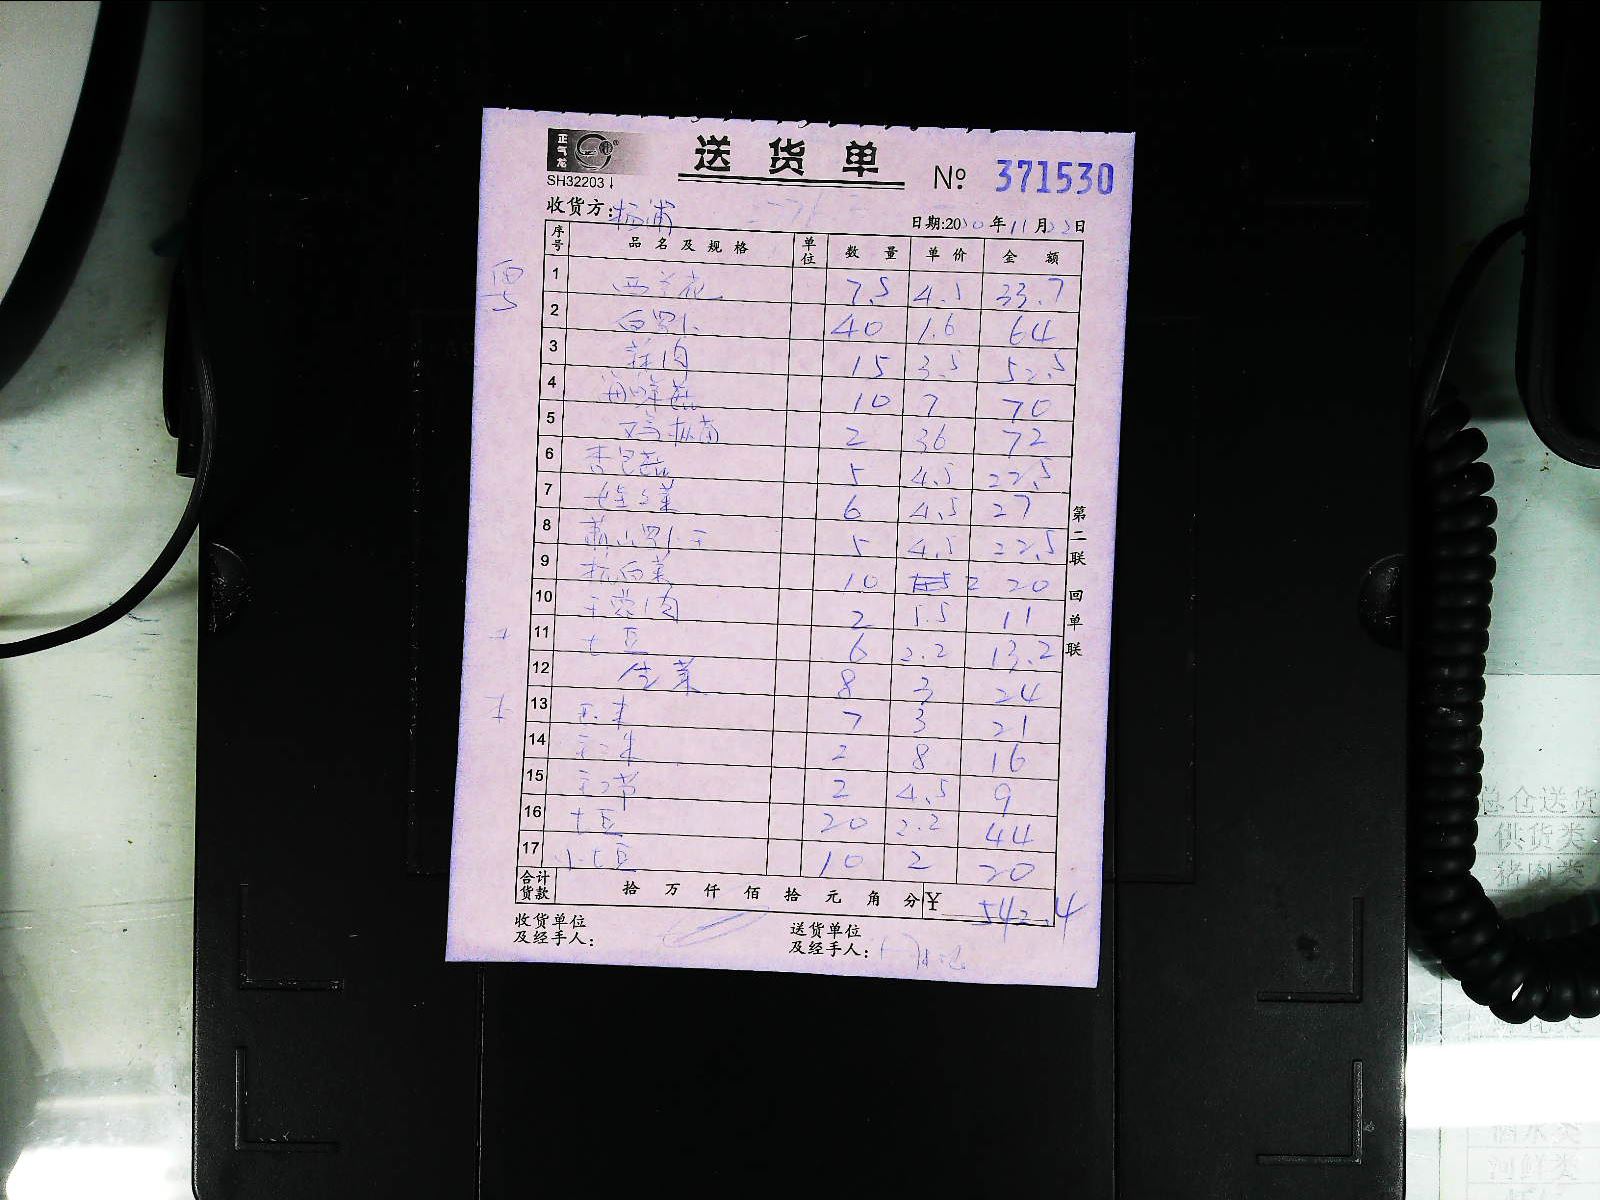 正气龙
SH32203
送货单
№ 371530
收货方:杨浦
日期:2020年11月22日
序号 品名及规格 单位 数量 单价 金额
1 西兰花 7.5 4.5 33.7
2 白罗卜 40 1.6 64
3 蒜肉 15 3.5 52.5
4 海鲜菇 10 7 70
5 2 36 72
6 杏包菇 5 4.5 22.5
7 娃娃菜 6 4.5 27
8 萧山罗卜干 5 4.5 22.5
9 杭白菜 10 2 20
10 2 5.5 11
11 土豆 6 2.2 13.2
12 生菜 8 3 24
13 玉米 7 3 21
14 2 8 16
15 2 4.5 9
16 土豆 20 2.2 44
17 小土豆 10 2 20
合计货款 拾万仟佰拾元角分 ¥ 542.4
收货单位及经手人:
送货单位及经手人:
第二联 回单联
总仓送货
供货类
猪肉类
酒水类
河鲜类